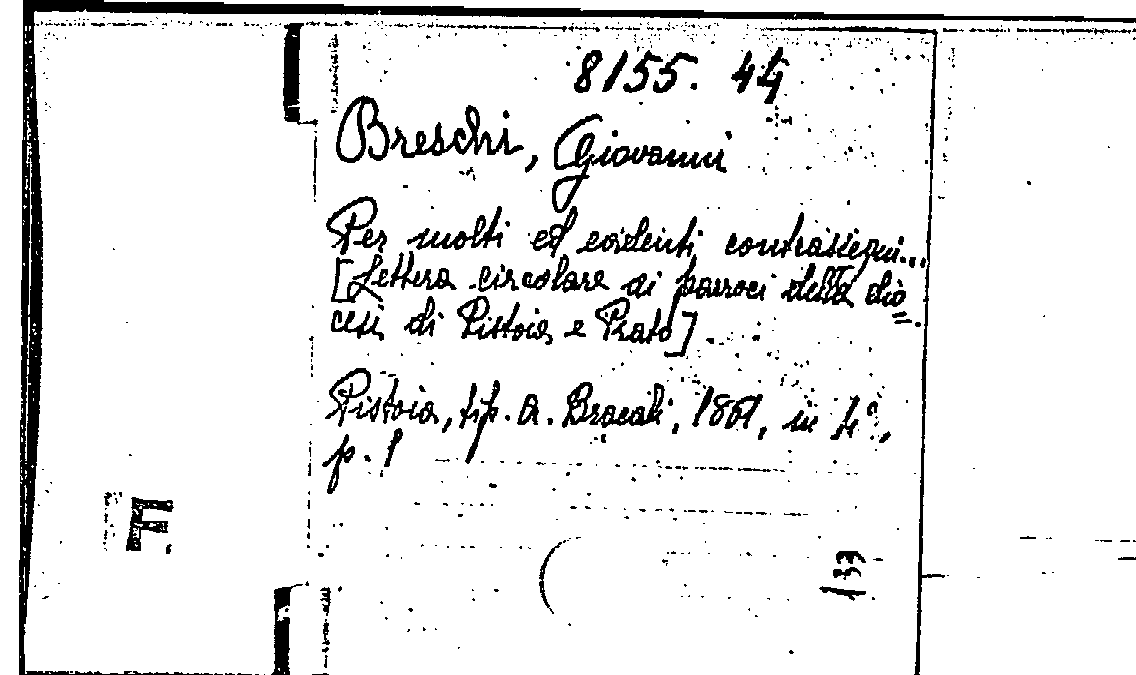 8155. 44
Breschi, Giovanni
Per molti ed evidenti contrassegni...
[Lettera circolare ai parroci della dio=
cesi di Pistoia e Prato].
Pistoia, tip. A. Bracali, 1861, in 4°,
p. 1
F.
133